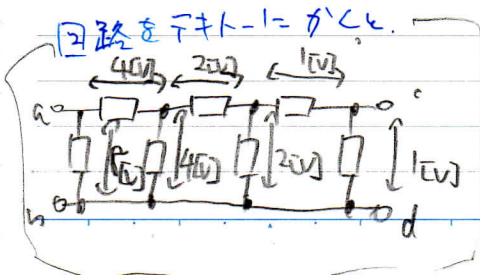 回路をテキトーにかくと.
4[V] 2[V] 1[V]
a c
8[V] 4[V] 2[V] 1[V]
b d